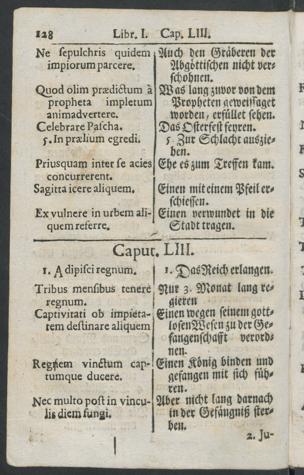 128 Libr. I. Cap. LIII.
Ne sepulchris quidem
impiorum parcere.
Quod olim prædictum à
propheta impletum
animadvertere.
Celebrare Pascha.
5. In prælium egredi.
Priusquam inter se acies
concurrerent.
Sagitta icere aliquem.
Ex vulnere in urbem ali-
quem referre.
Auch den Gräberen der
Abgöttischen nicht ver-
schohnen.
Was lang zuvor von dem
Propheten geweissaget
worden, erfüllet sehen.
Das Osterfest feyren.
5. Zur Schlacht auszie-
hen.
Ehe es zum Treffen kam.
Einen mit einem Pfeil er-
schiessen.
Einen verwundet in die
Stadt tragen.
Caput. LIII.
1. Adipisci regnum.
Tribus mensibus tenere
regnum.
Captivitati ob impieta-
tem destinare aliquem
Regnem vinctum cap-
tumque ducere.
Nec multo post in vincu-
lis diem fungi.
1. Das Reich erlangen.
Nur 3. Monat lang re-
gieren
Einen wegen seinem gott-
losen Wesen zu der Ge-
fangenschafft verord-
nen.
Einen König binden und
gefangen mit sich füh-
ren.
Aber nicht lang darnach
in der Gefängniß ster-
ben.
2. Ju-